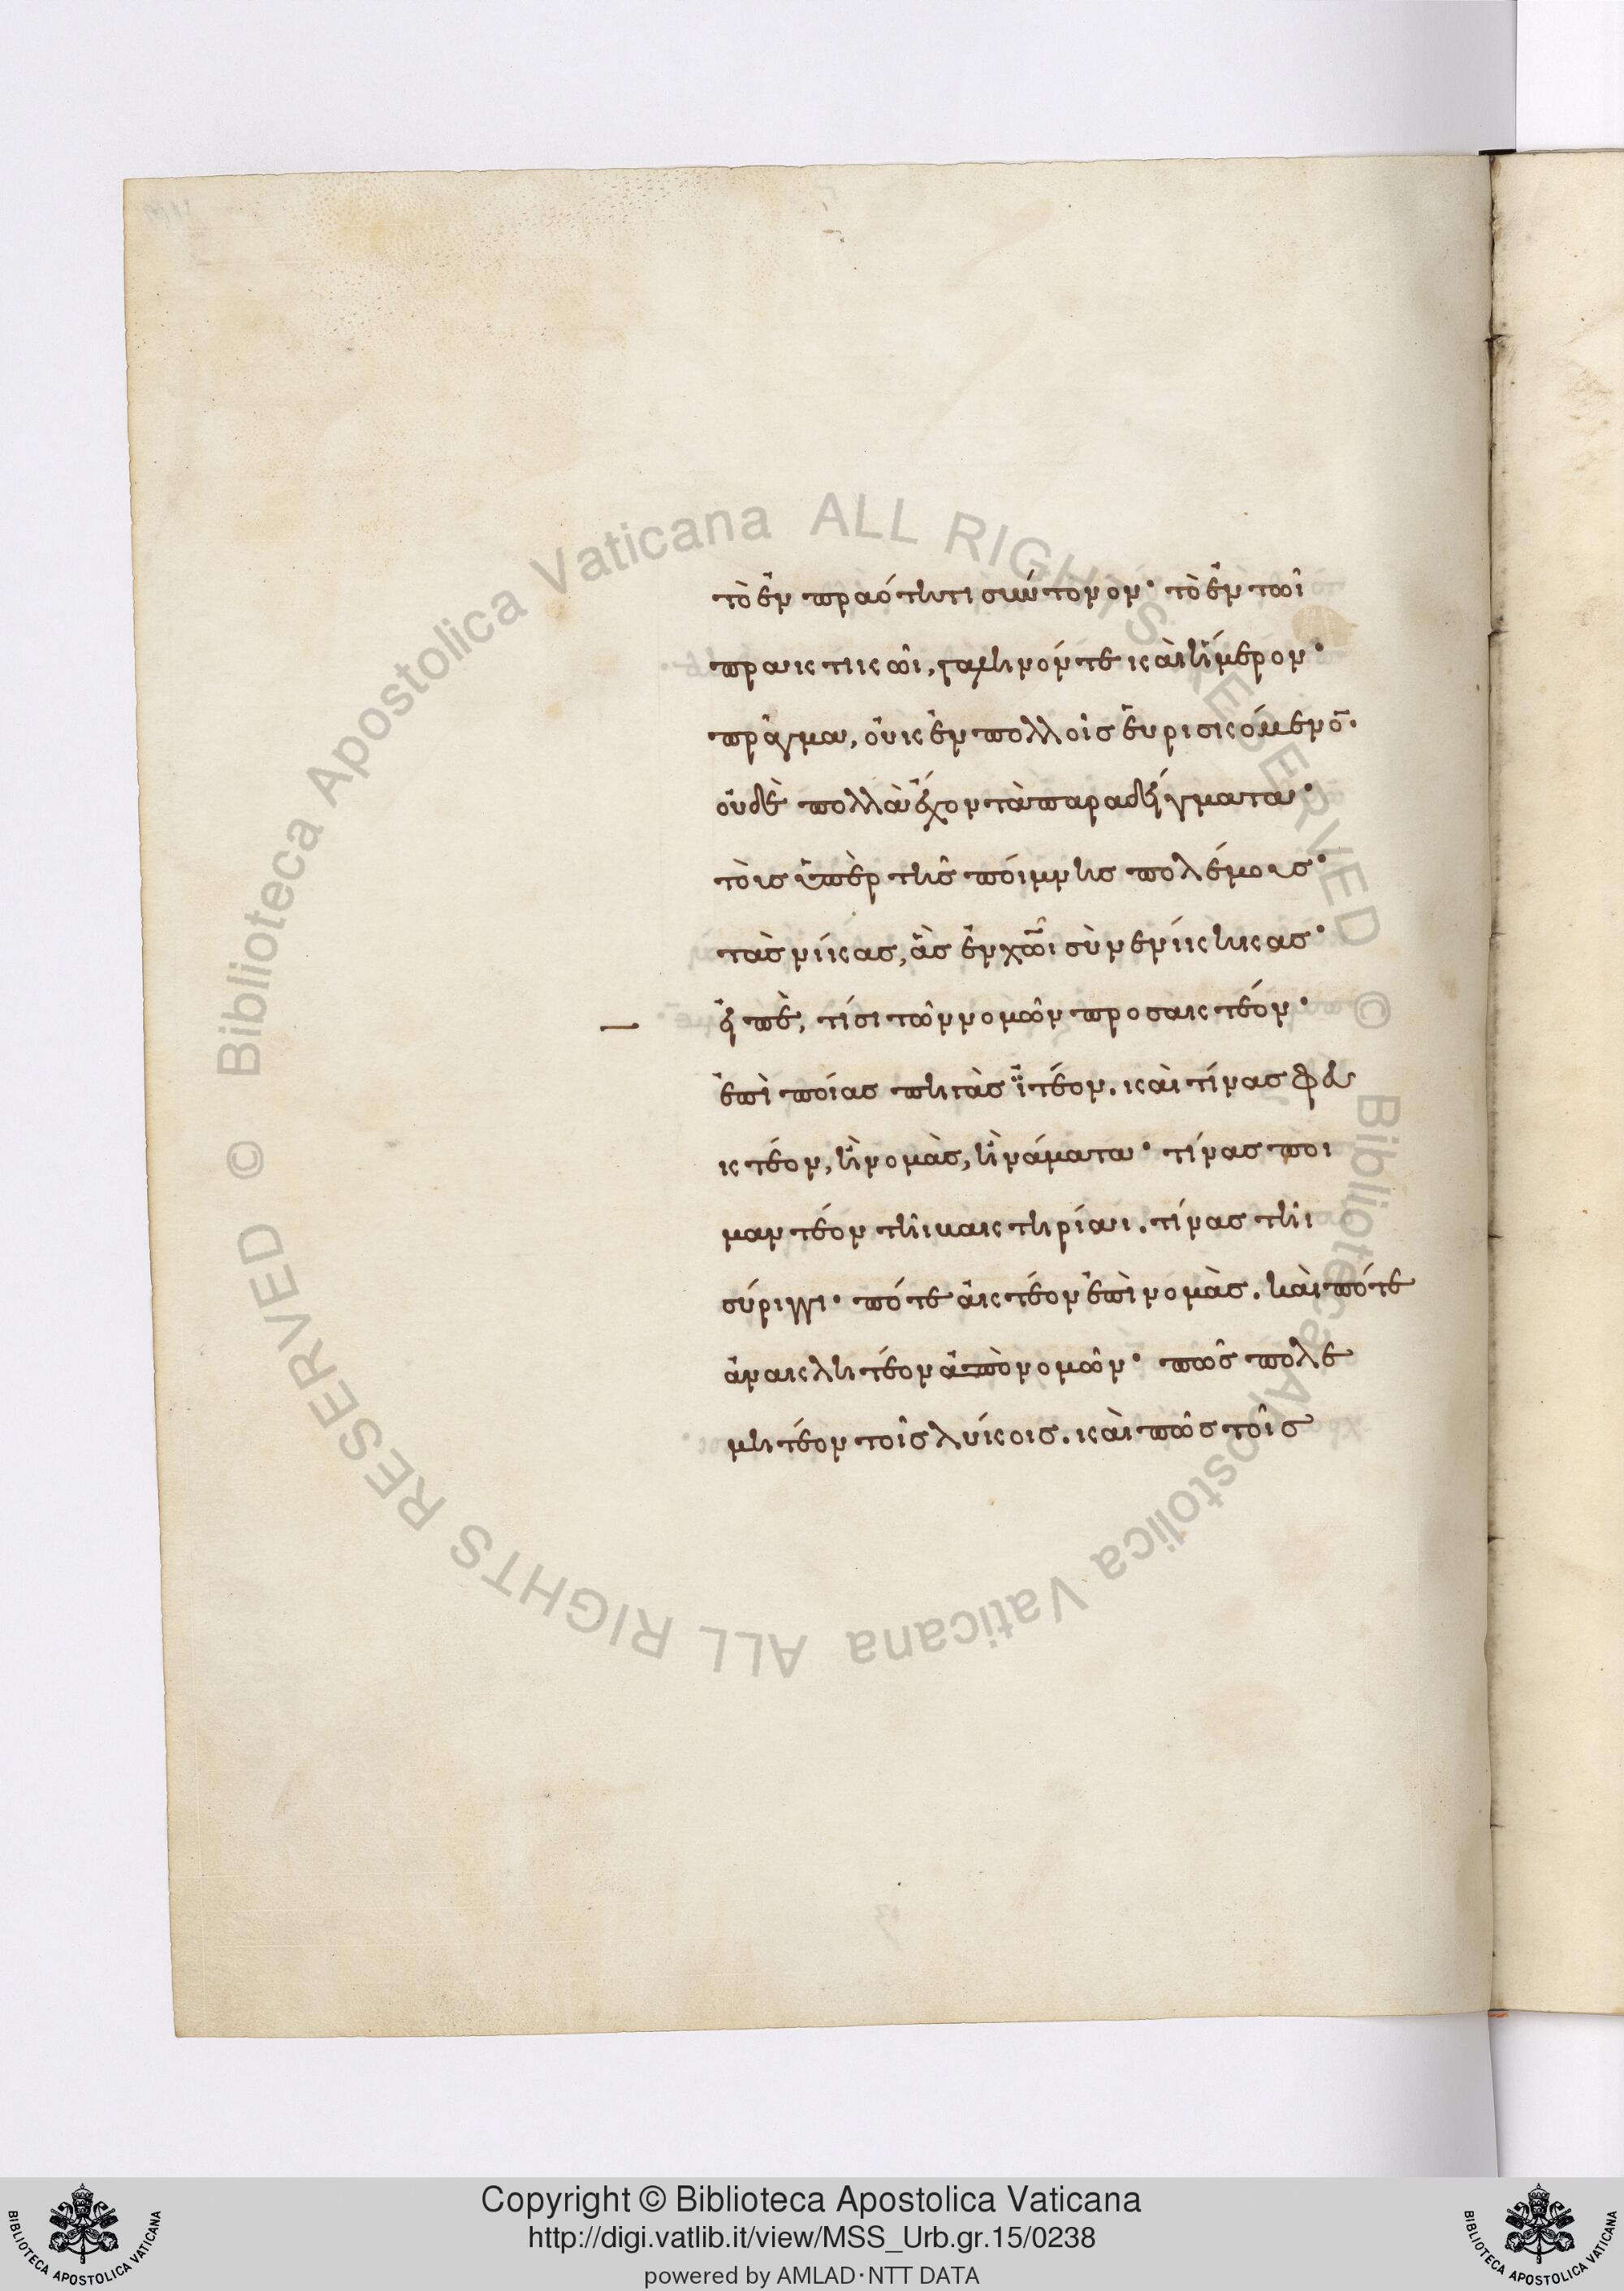 τὸ ἐν πραότητι σύντονον· τὸ ἐν τῶι
πρακτικῶι, γαληνόν τε καὶ ἥμερον·
πρᾶγμα, οὐκ ἐν πολλοῖς εὑρισκόμενο̅·
οὐδὲ πολλὰ ἔχον τὰ παραδείγματα·
τοῖς ὑπὲρ τῆς ποίμνης πολέμοις·
τὰς νίκας, ἃς ἐν χ̅ῶι σὺ νενίκηκας·
εἰπὲ, τίσι τῶν νομῶν προσακτέον·
ἐπὶ ποίας πηγὰς ἰτέον. καὶ τίνας φευ
κτέον, ἢ νομὰς, ἢ νάματα· τίνας ποι
μαντέον τῆι βακτηρίαι. τίνας τῆι
σύριγγι· πότε ἀκτέον ἐπὶ νομὰς. καὶ πότε
ἀνακλητέον ἀπὸ νομῶν· πῶς πολε
μητέον τοῖς λύκοις. καὶ πῶς τοῖς
Copyright © Biblioteca Apostolica Vaticana
http://digi.vatlib.it/view/MSS_Urb.gr.15/0238
powered by AMLAD·NTT DATA
BIBLIOTECA APOSTOLICA VATICANA
BIBLIOTECA APOSTOLICA VATICANA
© Biblioteca Apostolica Vaticana ALL RIGHTS RESERVED
© Biblioteca Apostolica Vaticana ALL RIGHTS RESERVED